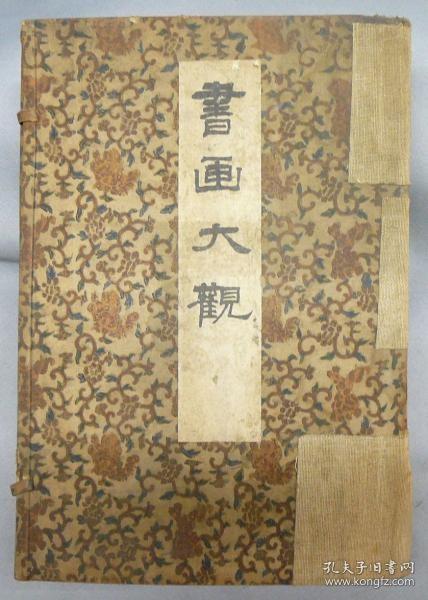 書画大觀
孔夫子旧书网
www.kongfz.com